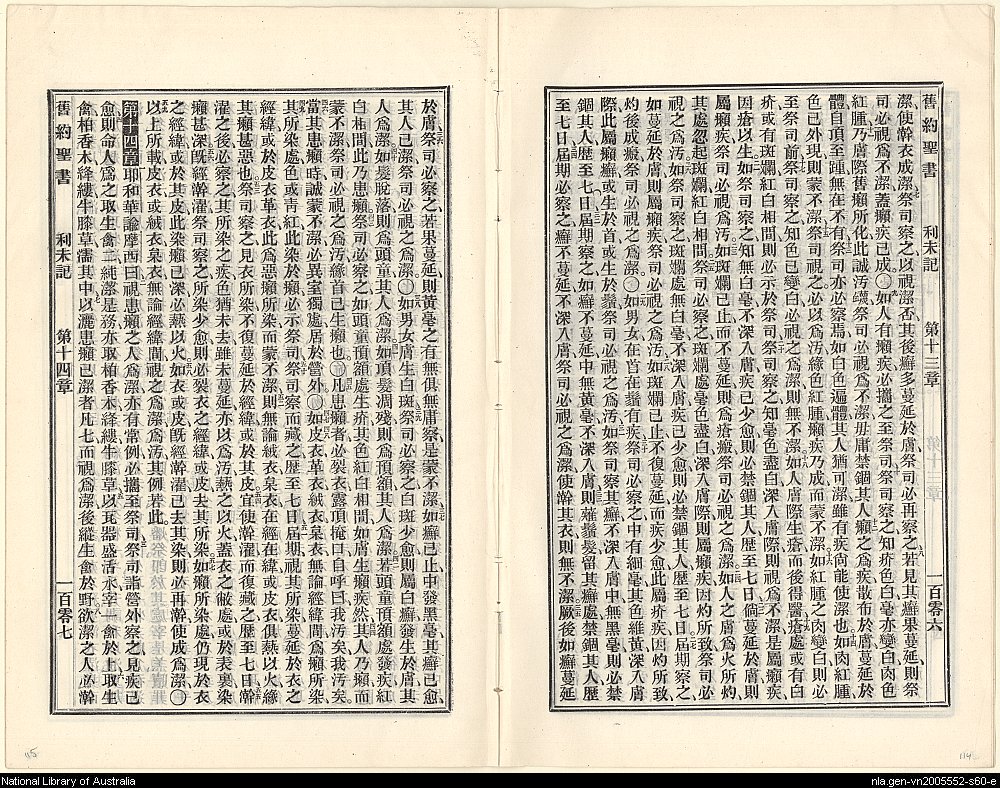 舊約聖書 利未記 第十三章 一百零六
潔使澣衣成潔祭司察之以視潔否其後癬多蔓延於膚祭司必再察之若見其癬果蔓延則祭
司必視爲不潔蓋癩疾已成〇如人有癩疾必攜之至祭司祭司察之知疥色白毫亦變白肉色
紅腫乃膚際舊癩所化此誠污衊祭司必視爲不潔毋庸禁錮其人癩之爲疾散布於膚蔓延於
體自頂至踵無在不有祭司亦必察焉如白色遍體其人猶可潔雖有疾尙能使潔也如肉紅腫
色已外現則蒙不潔祭司視之必以爲污緣色紅腫癩疾乃成而蒙不潔如紅腫之肉變白則必
至祭司前祭司察之知色已變白必視之爲潔則無不潔如人膚際生瘡而後得醫瘡處或有白
疥或有斑斕紅白相間則必示於祭司祭司察之知毫色盡白深入膚際則視爲不潔是屬癩疾
因瘡以生如祭司察之知無白毫不深入膚疾已少愈則必禁錮其人歷至七日倘蔓延於膚則
屬癩疾祭司必視之爲污如斑斕已止而不蔓延則爲瘡瘢祭司必視之爲潔如人之膚爲火所灼
其處忽起斑斕紅白相間祭司必察之斑斕處毫色盡白深入膚際則屬癩疾因灼所致祭司必
視之爲污如祭司察之斑斕處無白毫不深入膚疾已少愈則必禁錮其人歷至七日屆期察之
如蔓延於膚則屬癩疾祭司必視之爲污如斑斕已止不復蔓延而疾少愈此屬疥疾因灼所致
灼後成瘢祭司必視之爲潔〇如男女在首在鬚有疾祭司必察之中有細毫其色維黃深入膚
際此屬癩癬或生於首或生於鬚祭司必視之爲污如祭司察其癬不深入膚中無黑毫則必禁
錮其人歷至七日屆期察之如癬不蔓延中無黃毫不深入膚則薙鬚髮留其癬處禁錮其人歷
至七日屆期必察之癬不蔓延不深入膚祭司必視之爲潔使澣其衣則無不潔厥後如癬蔓延
於膚祭司必察之若果蔓延則黃毫之有無俱無庸察是蒙不潔如癬已止中發黑毫其癬已愈
其人已潔祭司必視之爲潔〇如男女膚生白斑祭司必察之白斑少愈則屬白癬發生於膚其
人爲潔如髮脫落則爲頭童其人爲潔如頂髮凋殘則爲頂額其人爲潔若頭童頂額處發疾紅
白相間此乃患癩祭司必察之如頭童頂額處生疥其色紅白相間如膚生癩疾然其人爲癩乃
蒙不潔祭司必視之爲污緣首已生癩也〇凡患癩者必裂衣露頂掩口自呼曰我污矣我污矣
當其患癩時誠蒙不潔必異室獨處居於營外〇如皮衣革衣絨衣枲衣無論經緯間爲癩所染
其所染處色或靑紅此染於癩必示祭司祭司察而藏之歷至七日屆期視其所染蔓延於衣之
經緯或於皮衣革衣此爲惡癩所染而蒙不潔則無論絨衣枲衣在經在緯或皮衣俱爇以火緣
其癩甚惡也祭司察之見衣所染不復蔓延於經緯或於其皮宜使澣濯而復藏之歷至七日澣
濯之後必察之其所染之疾色猶未去雖未蔓延亦以爲污爇之以火蓋衣之敝處或於表裏染
癩甚深旣經澣濯祭司察之所染少愈則必裂衣之經緯或皮去其所染如癩所染處仍現於衣
之經緯或於其皮此染癩已深必爇以火如衣或皮旣經澣濯已去其染則必再澣使成爲潔〇
以上所載皮衣或絨衣枲衣無論經緯間視之爲潔爲污其例若此
第十四章耶和華諭摩西曰視患癩之人爲潔亦有常例必攜至祭司祭司詣營外察之見疾已
愈則命人爲之取生禽二純潔是務亦取柏香木絳縷牛膝草以瓦器盛活水宰一禽於上取生
禽柏香木絳縷牛膝草濡其中以灑患癩已潔者凡七而視爲潔後縱生禽於野欲潔之人必澣
舊約聖書 利未記 第十四章 一百零七
115
114
National Library of Australia
nla.gen-vn2005552-s60-e